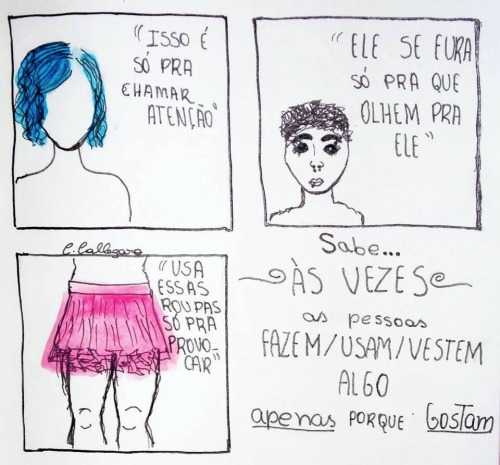 "ISSO É
SÓ PRA
CHAMAR
ATENÇÃO"
"ELE SE FURA
SÓ PRA QUE
OLHEM PRA
ELE"
C. Callegaro
"USA
ESSAS
ROUPAS
SÓ PRA
PROVO-
CAR"
Sabe...
ÀS VEZES
as pessoas
FAZEM/USAM/VESTEM
ALGO
apenas PORQUE GOSTAM